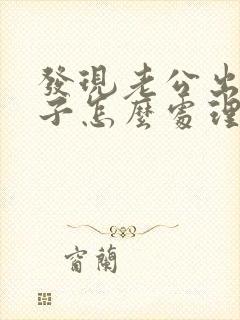 發現老公出
子怎麼處理
窗蘭